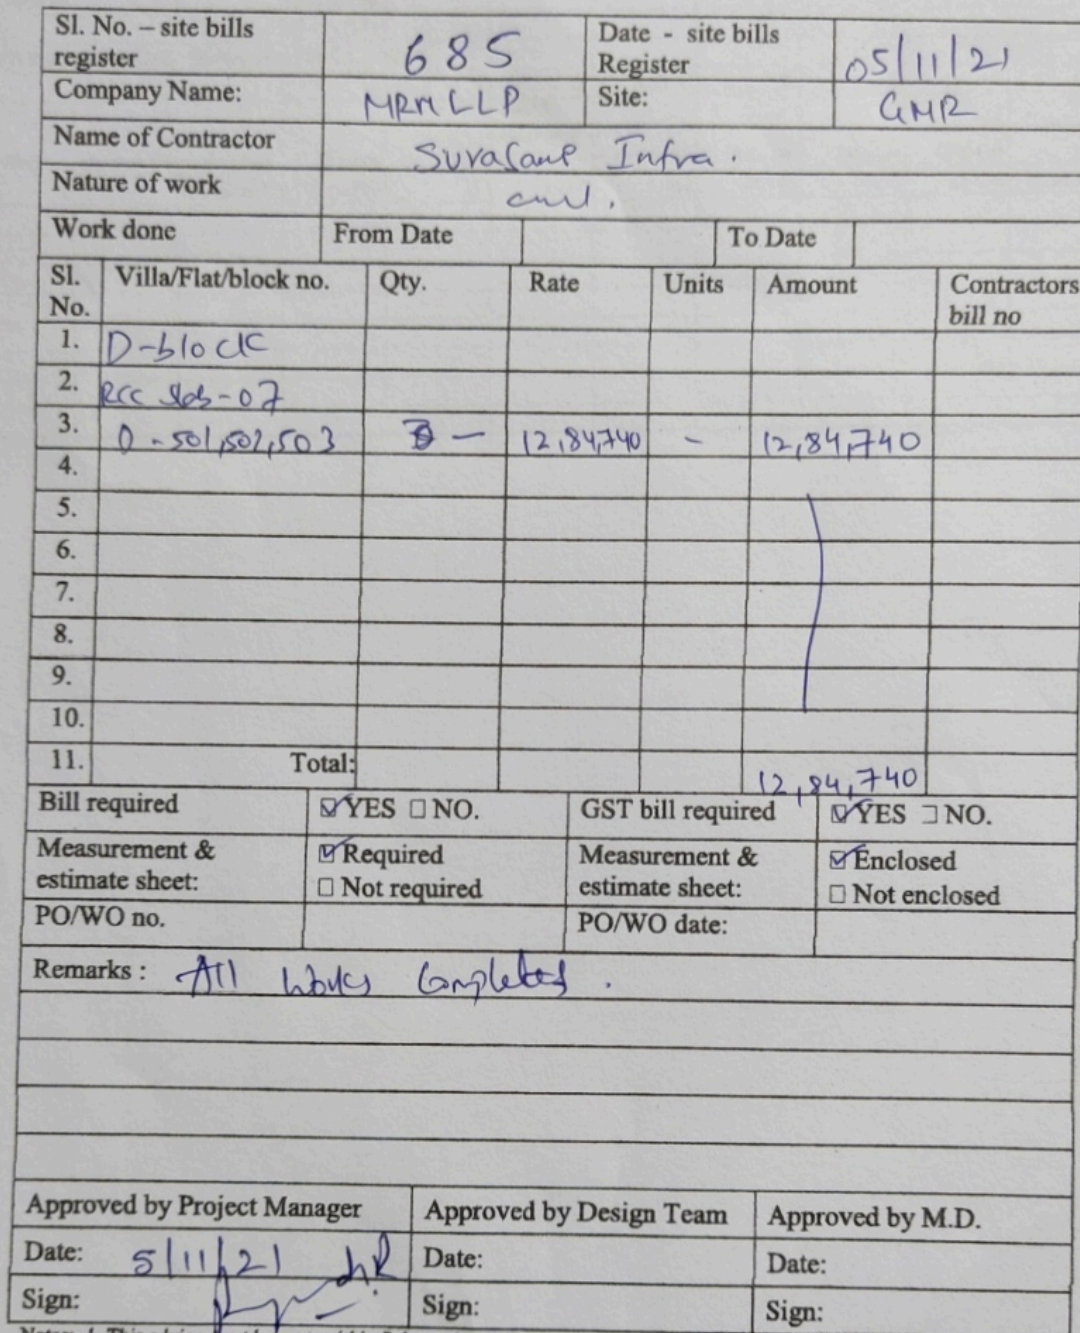 Sl. No. – site bills register 685 Date - site bills Register 05/11/21
Company Name: MRMLLP Site: GMR
Name of Contractor Infra.
Nature of work
Work done From Date To Date
Sl. No. Villa/Flat/block no. Qty. Rate Units Amount Contractors bill no
1. D-block
2. RCC Slab-07
3. D-501,502,503 — 12,84,740 - 12,84,740
4.
5.
6.
7.
8.
9.
10.
11. Total: 12,84,740
Bill required ☑YES ☐NO. GST bill required ☑YES ☐NO.
Measurement & estimate sheet: ☑Required ☐ Not required Measurement & estimate sheet: ☑Enclosed ☐ Not enclosed
PO/WO no. PO/WO date:
Remarks : All works Completed.
Approved by Project Manager Approved by Design Team Approved by M.D.
Date: 5/11/21 Date: Date:
Sign: Sign: Sign: